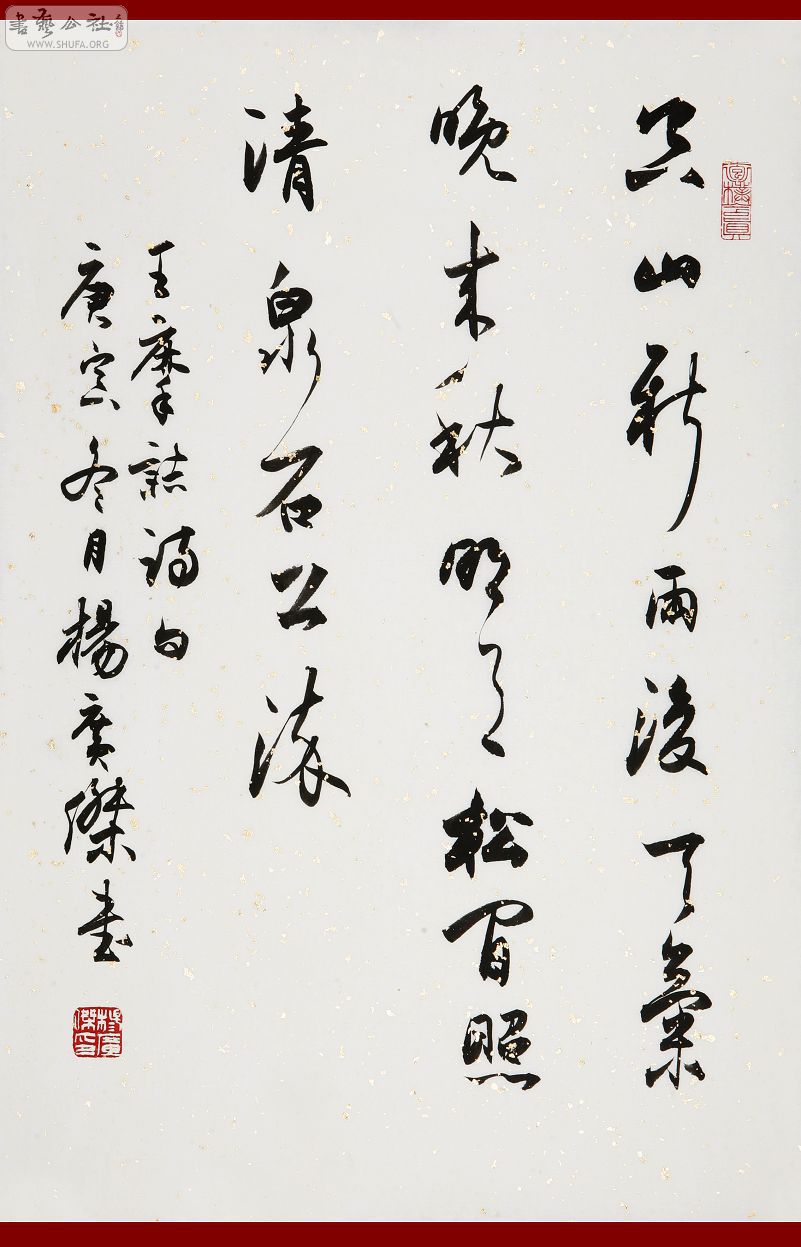 空山新雨後天氣
晚来秋明月松間照
清泉石上流
王摩詰詩句
庚寅冬月楊廣傑書
書藝公社
WWW.SHUFA.ORG